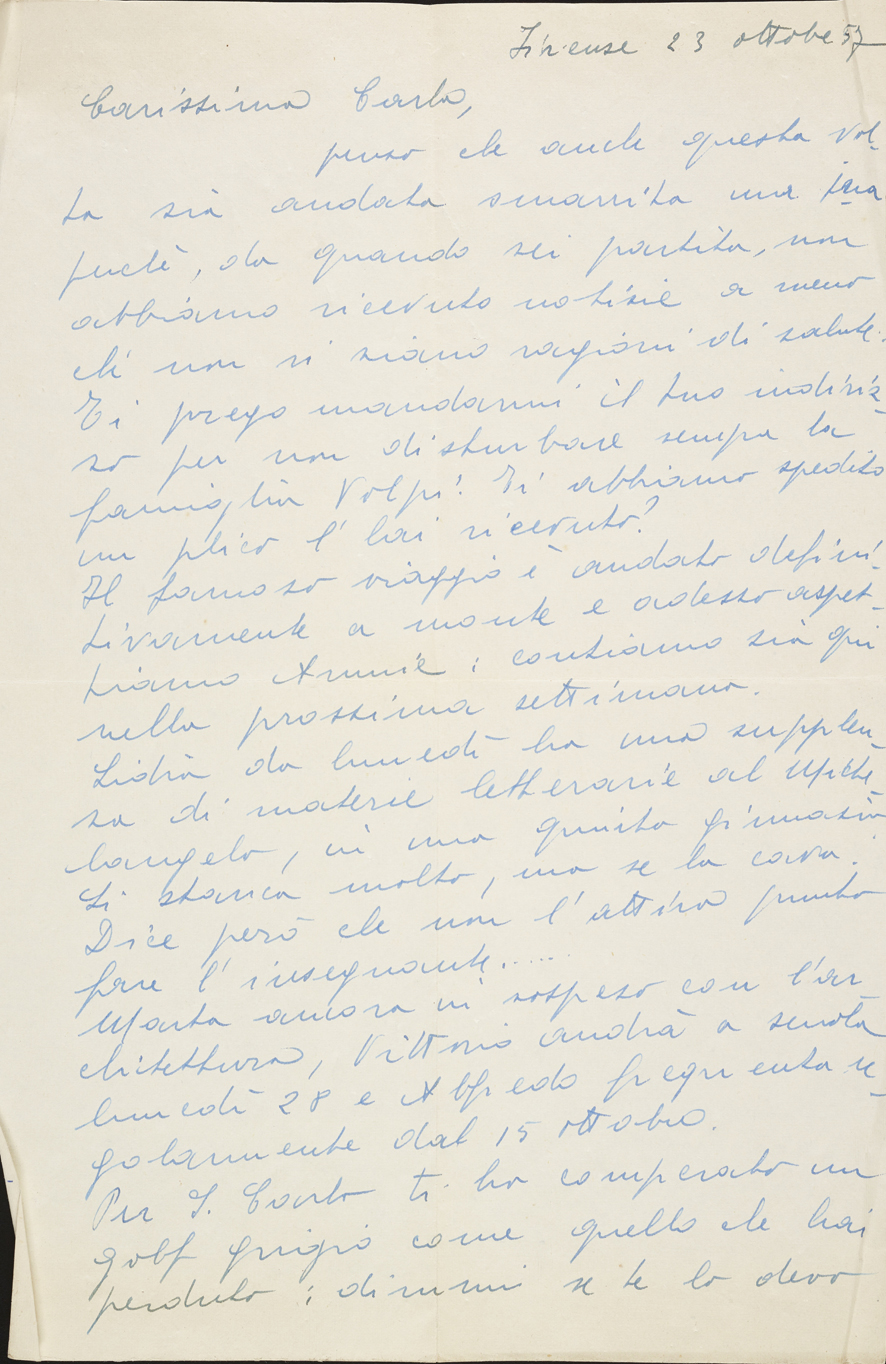 Firenze 23 ottobre 57
Carissimo Carlo,
penso che anche questa vol-
ta sia andata smarrita una tua
perchè, da quando sei partito, non
abbiamo ricevuto notizie a meno
chè non vi siano ragioni di salute.
Ti prego mandarmi il tuo indiriz-
zo per non disturbare sempre la
famiglia Volpi! Ti abbiamo spedito
un plico l'hai ricevuto?
Il famoso viaggio è andato defini-
tivamente a monte e adesso aspet-
tiamo Annie; contiamo sia qui
nella prossima settimana.
Lidia da lunedì ha una supplen-
za di materie letterarie al Miche-
langelo, in una quinta ginnasio
Si stanca molto, ma se la cava.
Dice però che non l'attira punto
fare l'insegnante.....
Marta ancora in sospeso con l'ar
chitettura, Vittorio andrà a scuola
lunedì 28 e Alfredo frequenta re-
golarmente dal 15 ottobre.
Per S. Carlo ti ho comperato un
golf grigio come quello che hai
perduto; dimmi se te lo devo